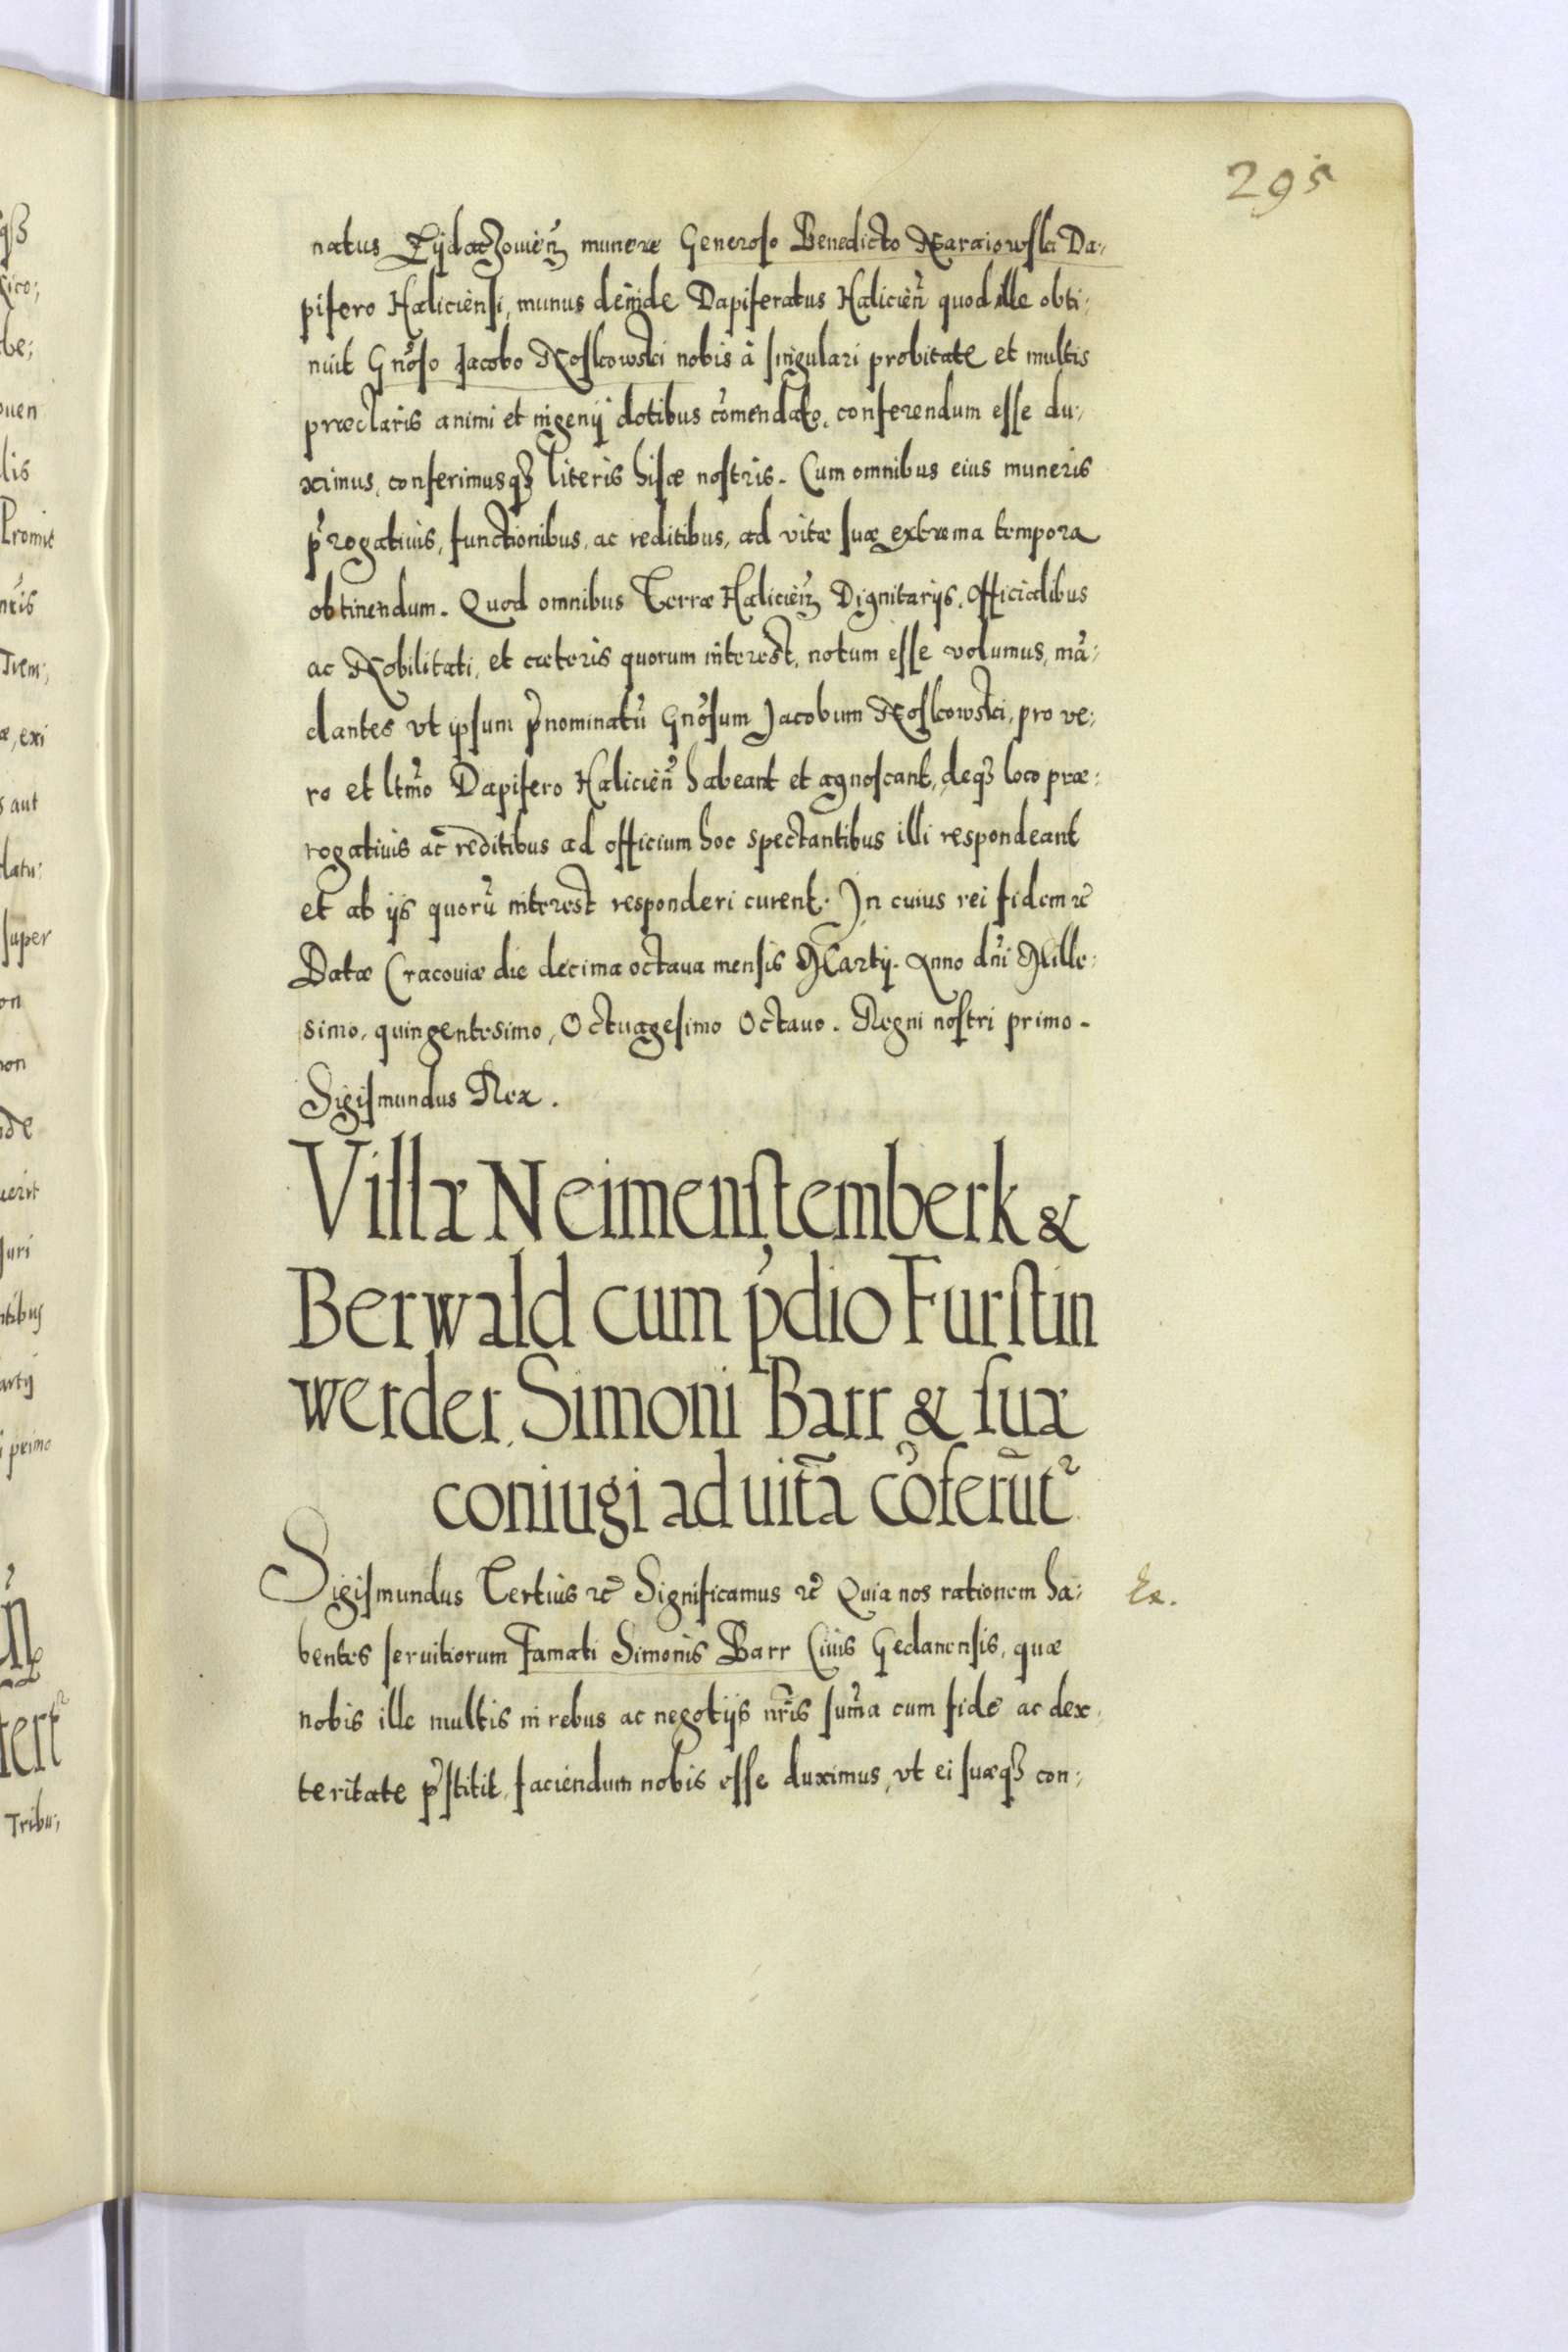 295
natus Zijdaczouien̄ munere Generoso Benedicto Naraiowski Da:
pifero Haliciensi, munus deinde Dapiferatus Halicien̄ quod ille obti:
nuit Gnōso Jacobo Noskowski nobis à singulari probitate et multis
præclaris animi et ingenij dotibus cōmendato, conferendum esse du:
ximus, conferimusqȝ literis hisce nostris. Cum omnibus eius muneris
p̄rogatiuis, functionibus, ac reditibus, ad vitæ suæ extrema tempora
obtinendum. Quod omnibus Terræ Halicien̄ Dignitarijs, Officialibus
ac Nobilitati, et cæteris quorum interest, notum esse volumus, mā:
dantes vt ipsum p̄nominatū Gnōsum Jacobum Noskowski, pro ve:
ro et ltm̄o Dapifero Halicien̄ habeant et agnoscant, deqȝ loco præ:
rogatiuis ac reditibus ad officium hoc spectantibus illi respondeant
et ab ijs quorū interest responderi curent. In cuius rei fidem ꝛc̄
Datæ Cracouiæ die decima octaua mensis Martij. Anno dn̄i Mille:
simo, quingentesimo, Octuagesimo Octauo. Regni nostri primo.
Sigismundus Rex.
Villæ Neimenstemberk &
Berwald cum p̄dio Furstin
werder, Simoni Barr & suæ
coniugi ad uitā cōferūtꝛ
Sigismundus Tertius ꝛc̄ Significamus ꝛc̄ Quia nos rationem ha:
Ex.
bentes seruitiorum Famati Simonis Barr Ciuis Gedanensis, quæ
nobis ille multis in rebus ac negotijs nr̄is sum̄a cum fide ac dex:
teritate p̄stitit, faciendum nobis esse duximus, vt ei suæqȝ con: